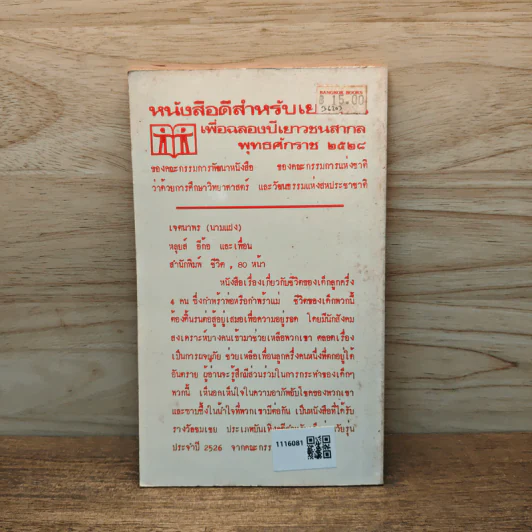 หนังสือดีสำหรับเย
BANGKOK BOOKS
฿ 15.00
เพื่อฉลองปีเยาวชนสากล
พุทธศักราช ๒๕๒๘
ของคณะกรรมการพัฒนาหนังสือ ของคณะกรรมการแห่งชาติ
ว่าด้วยการศึกษาวิทยาศาสตร์ และวัฒนธรรมแห่งสหประชาชาติ
เจตนาพร (นามแฝง)
หลุยส์ อีก้อ และเพื่อน
สำนักพิมพ์ ชีวิต , 80 หน้า
หนังสือเรื่องเกี่ยวกับชีวิตของเด็กลูกครึ่ง
4 คน ซึ่งกำพร้าพ่อหรือกำพร้าแม่ ชีวิตของเด็กพวกนี้
ต้องดิ้นรนต่อสู้อยู่เสมอเพื่อความอยู่รอด โดยมีนักสังคม
สงเคราะห์บางคนเข้ามาช่วยเหลือพวกเขา ตลอดเรื่อง
เป็นการผจญภัย ช่วยเหลือเพื่อนลูกครึ่งคนหนึ่งที่ตกอยู่ใต้
อันตราย ผู้อ่านจะรู้สึกมีส่วนร่วมในการกระทำของเด็กๆ
พวกนี้ เห็นอกเห็นใจในความอาภัพอับโชคของพวกเขา
และซาบซึ้งในน้ำใจที่พวกเขามีต่อกัน เป็นหนังสือที่ได้รับ
รางวัลชมเชย ประเภทบันเทิงคดีสำหรับเด็กก่อนวัยรุ่น
ประจำปี 2526 จากคณะกรร
1116081